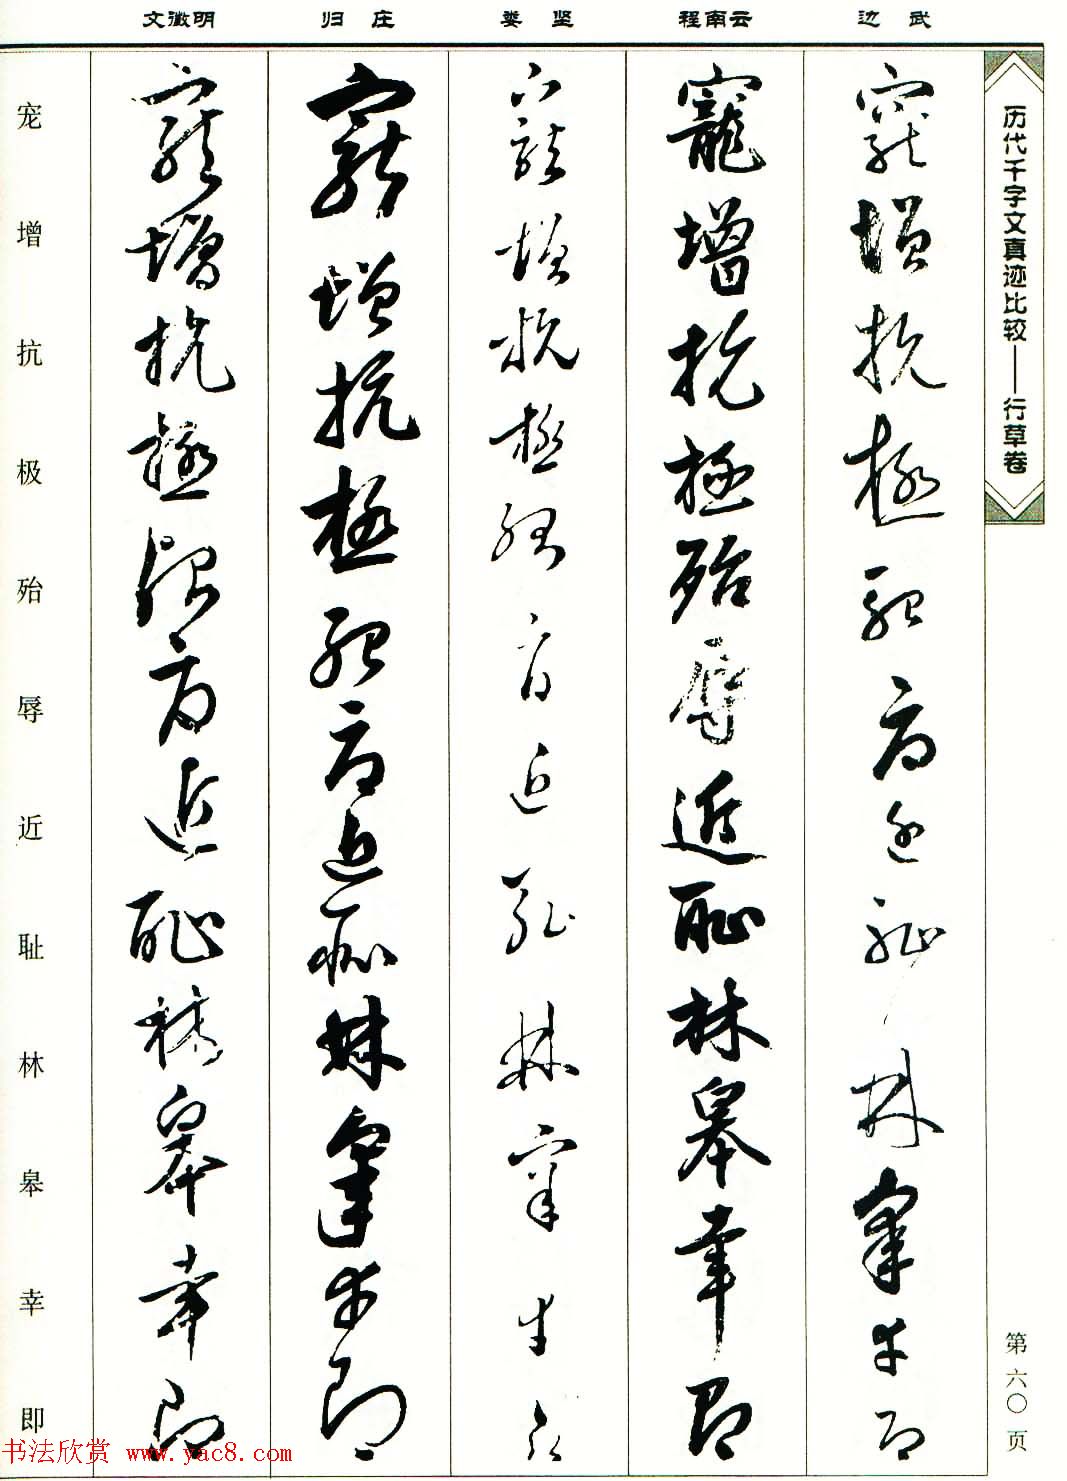 历代千字文真迹比较——行草卷
第六〇页
边武
寵增抗極殆辱近恥林皋幸即
程南云
寵增抗極殆辱近恥林皋幸即
娄坚
寵增抗極殆辱近恥林皋幸即
归庄
寵增抗極殆辱近恥林皋幸即
文徵明
寵增抗極殆辱近恥林皋幸即
宠增抗极殆辱近耻林皋幸即
书法欣赏 www.yac8.com